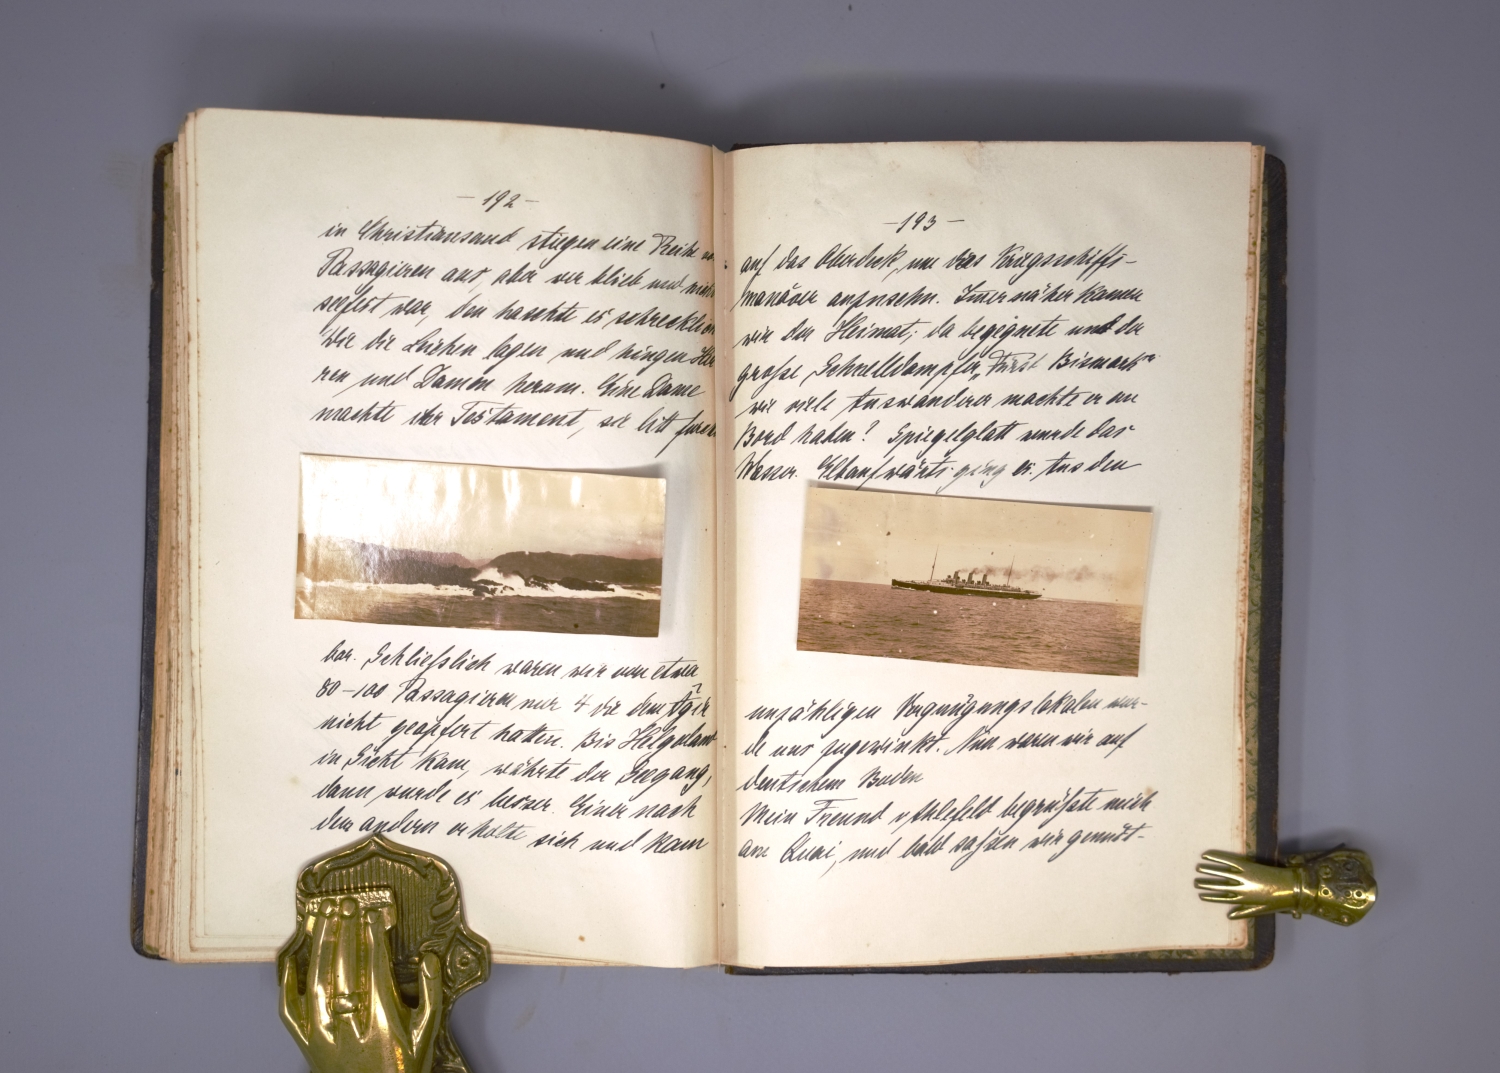 – 192 –
in Christiansand stiegen eine Reihe
Passagieren aus, aber wer blieb und
seefest war, den haschte es schrecklich
Wie die Leichen lagen und hingen Her
ren und Damen herum. Eine Dame
machte ihr Testament, sie litt
bar. Schliefslich waren wir von etwa
80–100 Passagieren nur 4 die dem Ägir
nicht geopfert hatten. Bis Helgoland
in Sicht kam, währte der Seegang,
dann wurde es besser. Einer nach
dem andern erholte sich und kam
– 193 –
auf das Oberdeck, um das Kriegsschiffs-
manöver anzusehn. Immer näher kamen
wir der Heimat; da begegnete uns der
grofse Schnelldampfer „Fürst Bismark“
wie viele Auswanderer mochte er an
Bord haben? Spiegelglatt wurde das
Wasser. Elbaufwärts ging es. Aus den
unzähligen Vergnügungslokalen wur-
de uns zugewinkt. Nun waren wir auf
deutschem Boden
Mein Freund v Ahlefeld begrüfste mich
am Quai, und bald safsen wir gemüt-